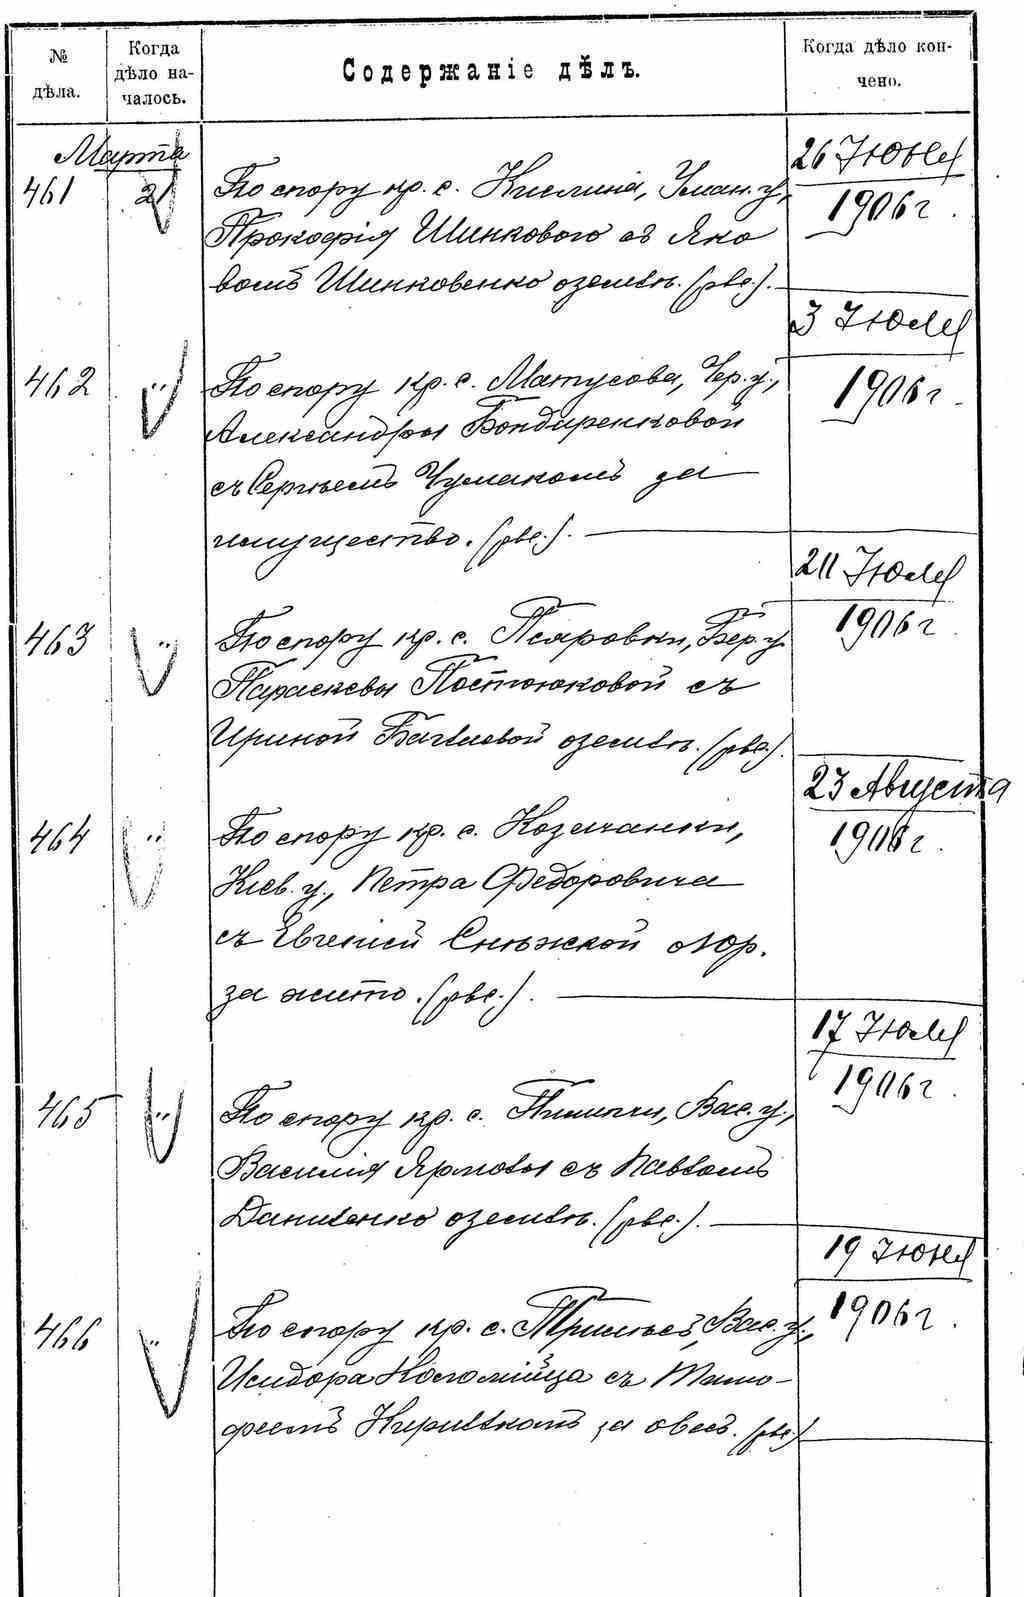 № дѣла.
Когда дѣло началось.
Содержаніе дѣлъ.
Когда дѣло кончено.
Марта
461
21
По спору кр. с. Кислина, Уман. у.,
Прокофія Шинкового съ Яко
вомъ Шинковенко о землѣ. (рѣс.).
26 Июня
1906 г.
462
"
По спору кр. с. Матусова, Чер. у.,
Александры Бондаренковой
съ Сергѣемъ Чумакомъ за
имущество. (рѣс.).
3 Июля
1906 г.
463
"
По спору кр. с. Псяровки, Бер. у.
Параскевы Постоюковой съ
Ириной о землѣ. (рѣс.).
20 Июля
1906 г.
464
"
По спору кр. с. Козичанки,
Кіев. у., Петра Федоровича
съ Евгеніей Снѣжской
за жито. (рѣс.).
23 Августа
1906 г.
465
"
По спору кр. с. Пилипчи, Вас. у.,
Василія Ярмолы съ Павломъ
Даниленко о землѣ. (рѣс.).
17 Июля
1906 г.
466
"
По спору кр. с. Трилѣсъ, Вас. у.,
Исидора Коломійца съ Тимо-
феемъ Кирилкомъ за овесъ. (рѣс.)
19 Июня
1906 г.